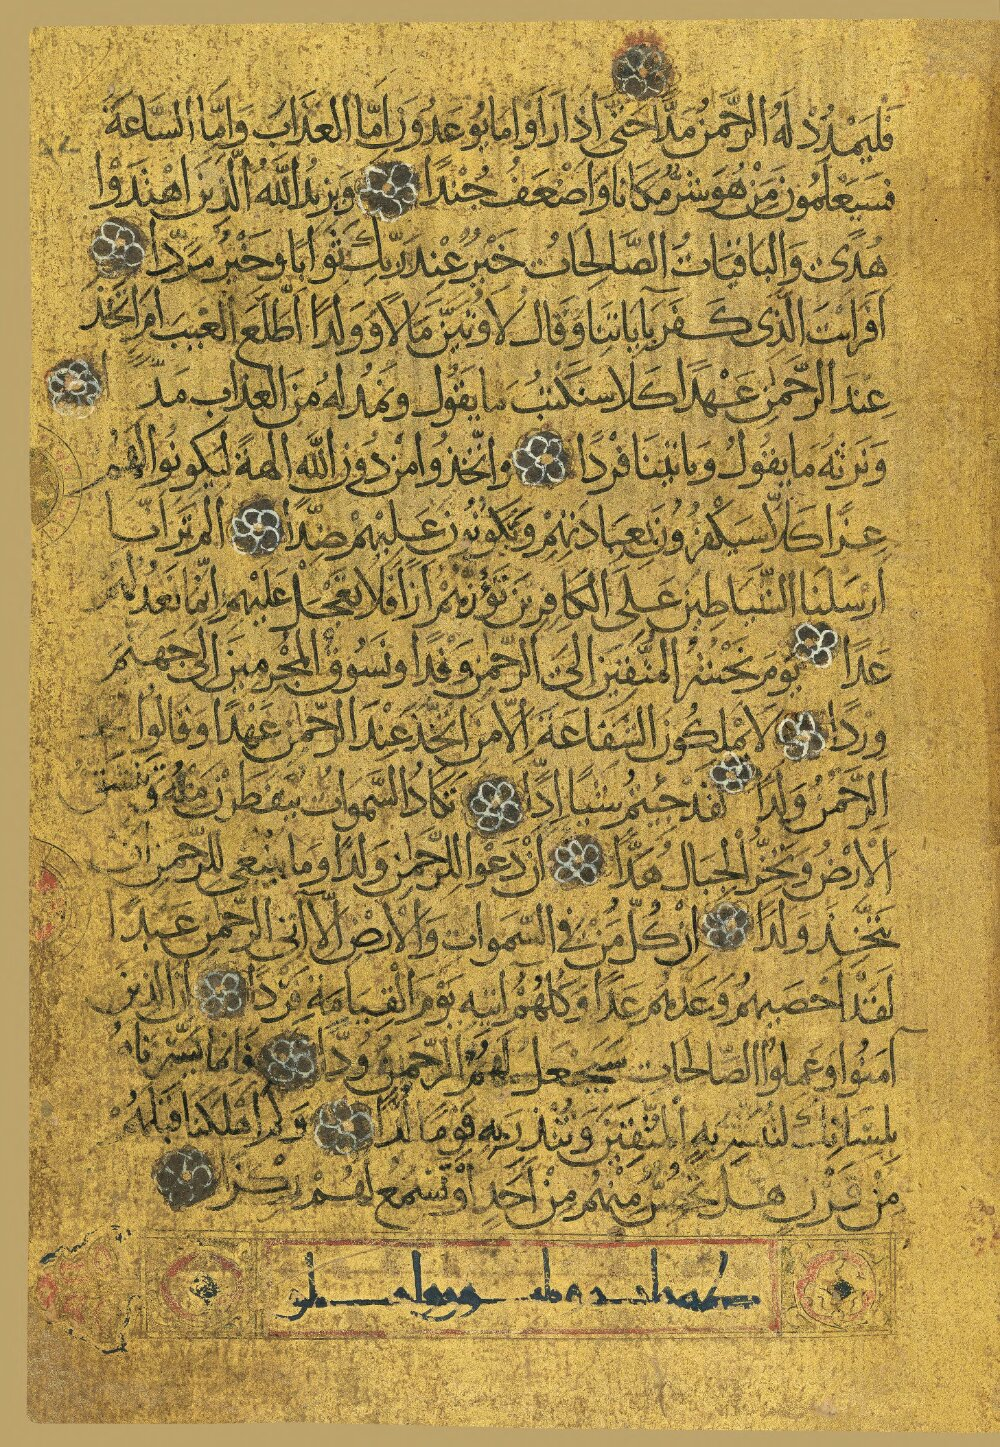 فَليَمْدُدْ لَهُ الرَّحمنُ مَدًّا حَتّى اِذا رَاَوا ما يُوعَدُونَ اِمّا العَذابَ وَاِمَّا السَّاعَة
فَسَيَعلَمُونَ مَنْ هُوَ شَرٌّ مَكانًا وَاَضْعَفُ جُندًا وَيَزيدُ اللهُ الَّذينَ اهْتَدَوْا
هُدًى وَالباقياتُ الصَّالِحاتُ خَيْرٌ عِنْدَ رَبِّكَ ثَوابًا وَخَيْرٌ مَرَدًّا
اَفَرَاَيتَ الَّذى كَفَرَ بِآياتِنا وَقالَ لَاُوتَيَنَّ مَالًا وَوَلَدًا اَطَّلَعَ الغَيبَ اَمِ اتَّخَذَ
عِندَ الرَّحمٰنِ عَهْدًا كَلا سَنَكتُبُ ما يَقُولُ وَنَمُدُّ لهُ مِنَ العَذابِ مَدًّا
وَنَرِثُهُ ما يَقُولُ وَيَاتينَا فَرْدًا وَاتَّخَذُوا مِنْ دُونِ اللهِ الهةً لِيَكُونُوا لَهُمْ
عِزًّا كَلّا سَيَكْفُرُونَ بِعِبادَتِهِمْ وَيَكُونُونَ عَلَيْهِمْ ضِدًّا الم تَرَ اَنّا
اَرْسَلنا الشَّيَاطينَ عَلَى الكافِرينَ تَؤُزُّهُمْ اَزًّا فَلا تَعْجَلْ عَلَيْهِم اِنَّما نَعُدُّ لَهُمْ
عَدًّا يَوْمَ نَحْشُرُ المُتَّقينَ اِلَى الرَّحمٰنِ وَفْدًا وَنَسُوقُ المُجْرِمينَ اِلى جَهَنَّمَ
وِرْدًا لَا يَمْلِكُونَ الشَّفَاعَةَ اِلّا مَنِ اتَّخَذَ عِنْدَ الرَّحْمٰنِ عَهْدًا وَقَالُوا اتَّخَذَ
الرَّحْمٰنُ وَلَدًا لَقَد جِئتُمْ شَيْئًا اِدًّا تَكَادُ السَّمواتُ يَتَفَطَّرْنَ مِنْهُ وَتَنْشَقُّ
الْاَرْضُ وَتَخِرُّ الْجِبَالُ هَدًّا اَنْ دَعَوْا لِلرَّحمٰنِ وَلَدًا وَمَا يَنْبَغِى لِلرَّحمٰنِ اَنْ
يَتَّخِذَ وَلَدًا اِنْ كُلُّ مَنْ فِى السَّمواتِ وَالْاَرْضِ اِلَّا آتِى الرَّحْمٰنِ عَبْدًا
لَقَدْ اَحْصَيهُمْ وَعَدَّهُمْ عَدًّا وَكُلُّهُمْ اتيهِ يَوْمَ القِيامَةِ فَرْدًا اِنَّ الَّذينَ
آمَنُوا وَعَمِلُوا الصَّالِحَاتِ سَيَجْعَلُ لَهُمُ الرَّحْمٰنُ وُدًّا فَاِنَّمَا يَسَّرْنَاهُ
بِلِسَانِكَ لِتُبَشِّرَ بِهِ المُتَّقينَ وَتُنْذِرَ بِهِ قَوْمًا لُدًّا وَكَمْ اَهْلَكْنَا قَبْلَهُمْ
مِنْ قَرْنٍ هَلْ تُحِسُّ مِنْهُمْ مِنْ اَحَدٍ اَوْ تَسْمَعُ لَهُمْ رِكْزًا